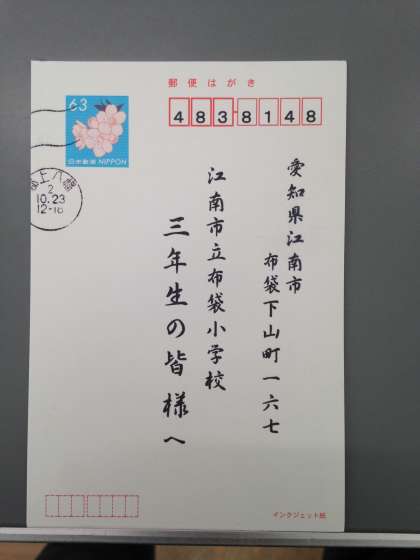 郵便はがき
63
日本郵便 NIPPON
483-8148
2
10.23
12-18
愛知県江南市
布袋下山町一六七
江南市立布袋小学校
三年生の皆様へ
インクジェット紙